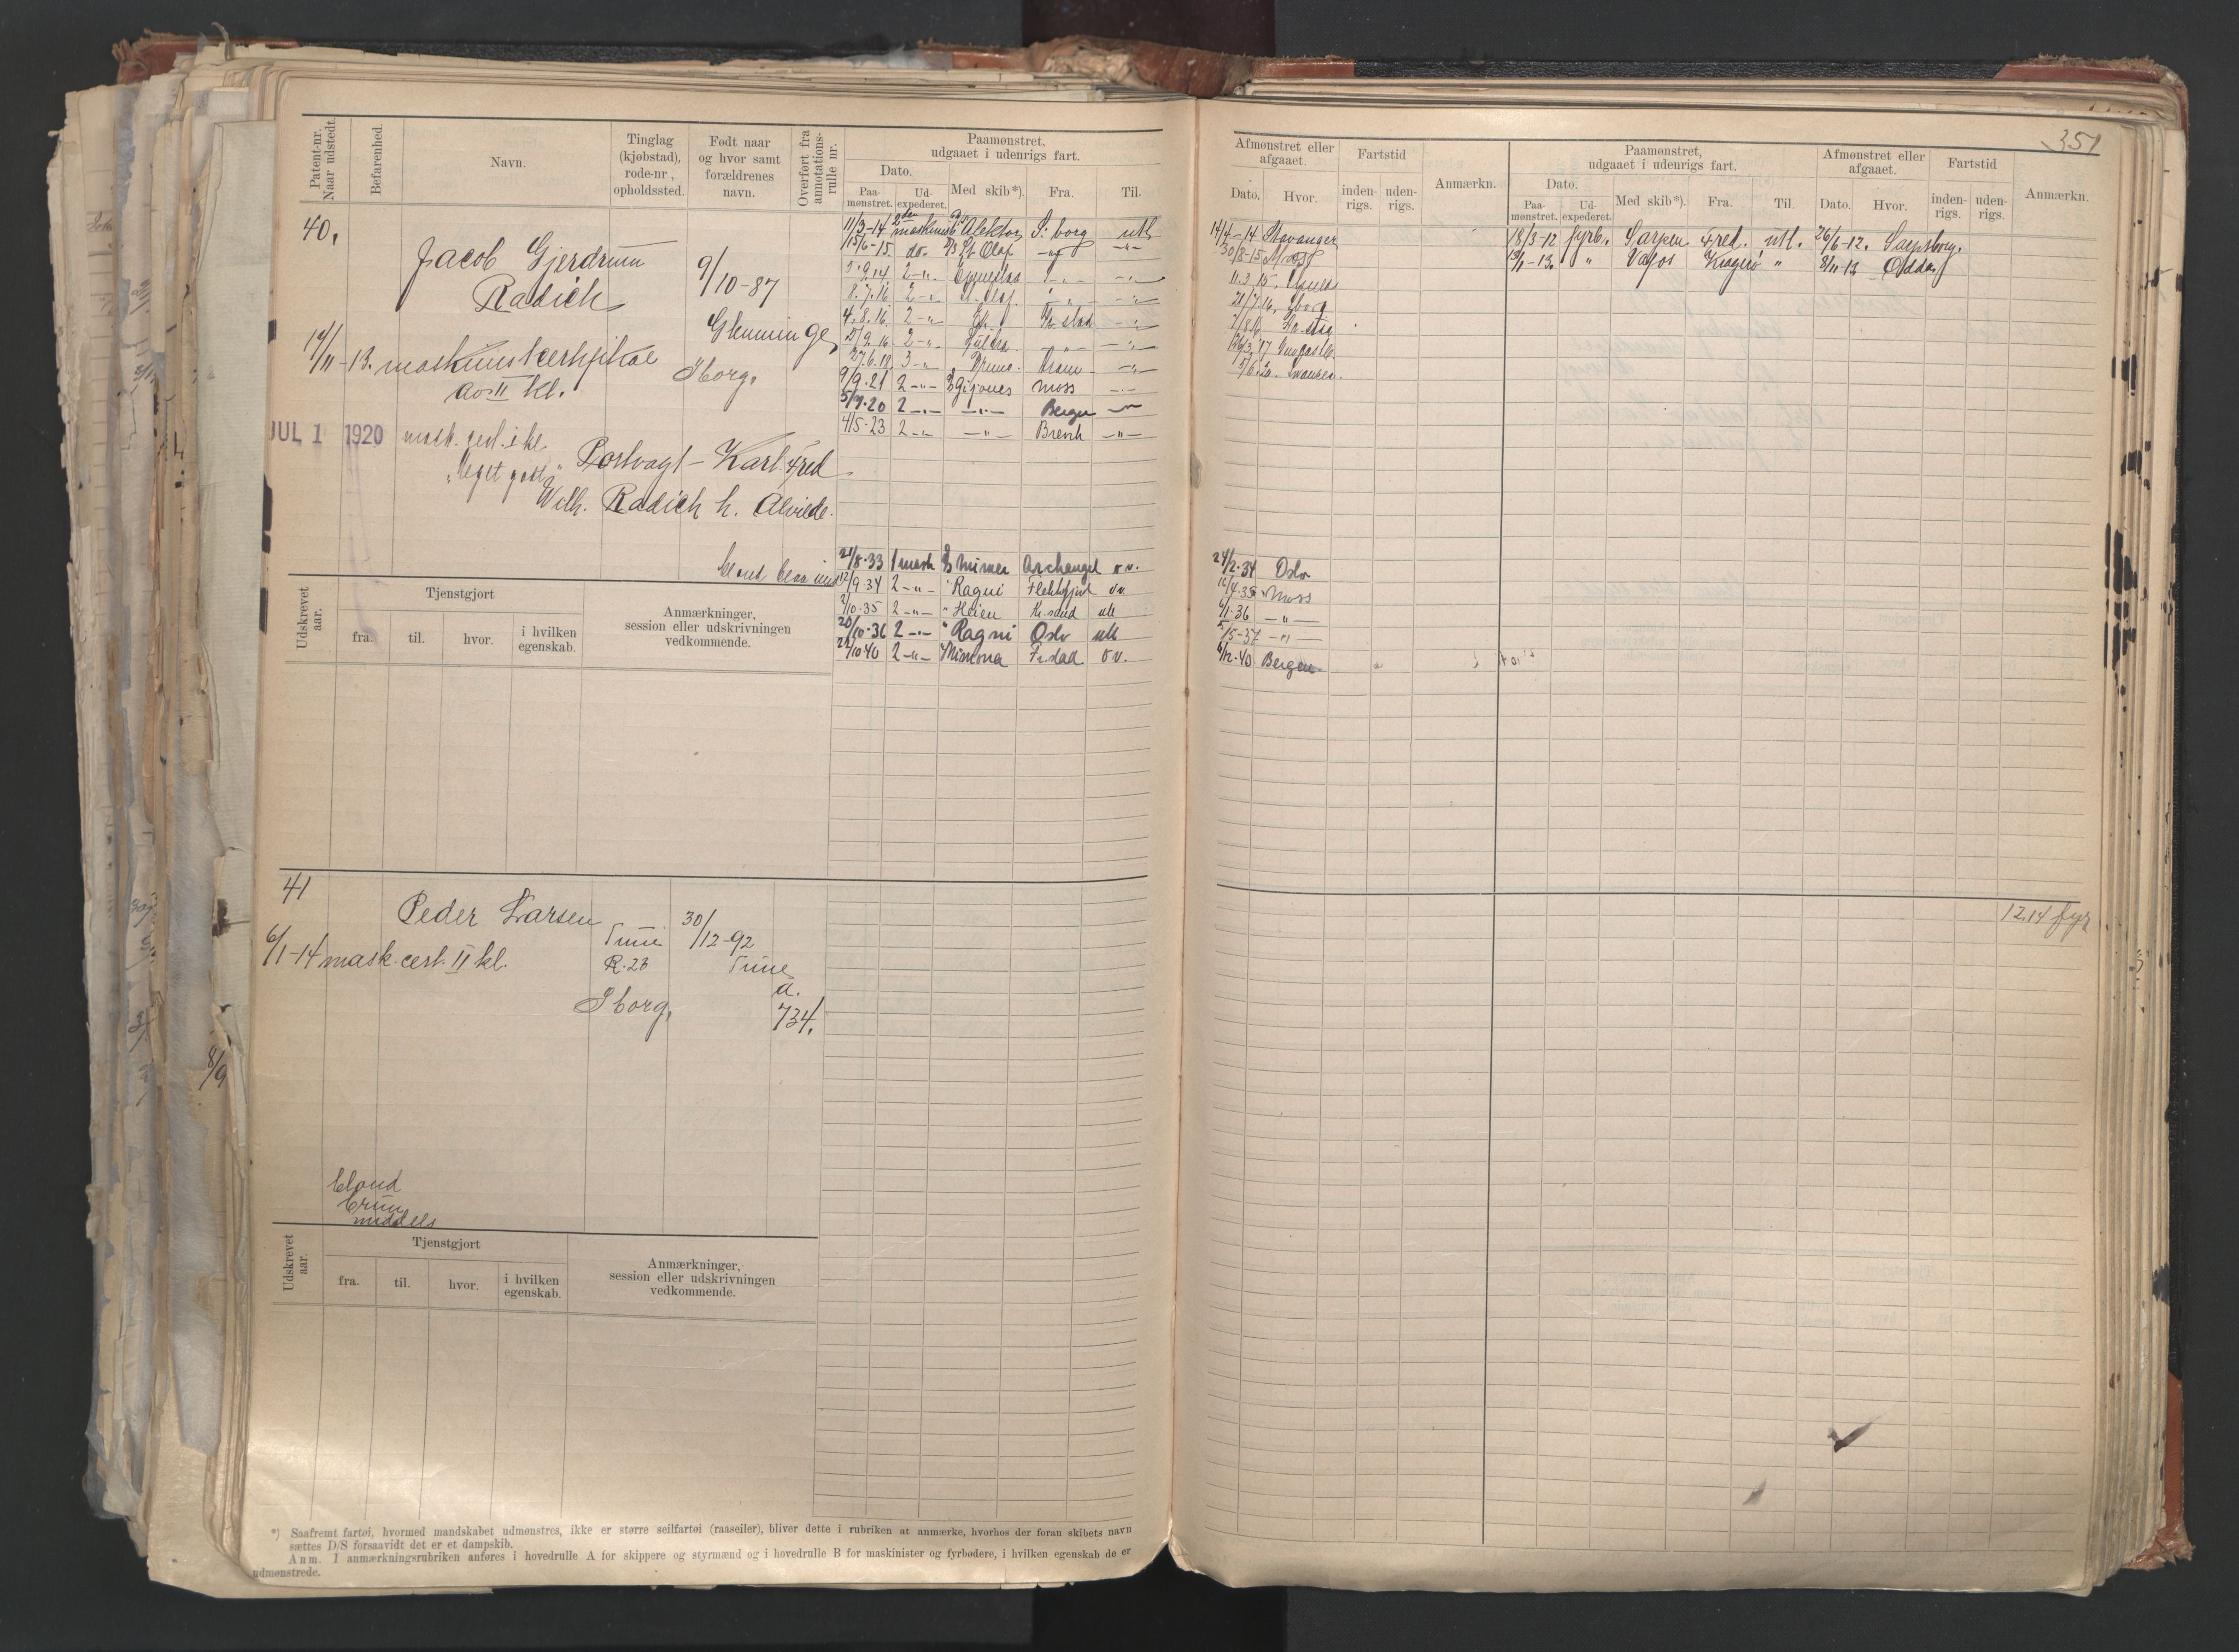 351
Patent-nr. Naar udstedt.
Befarenhed.
Navn.
Tinglag (kjøbstad), rode-nr., opholdssted.
Født naar og hvor samt forældrenes navn.
Overført fra annotations-rulle nr.
Paamønstret, udgaaet i udenrigs fart.
Dato.
Paa-mønstret.
Ud-expederet.
Med skib*).
Fra.
Til.
Afmønstret eller afgaaet.
Dato.
Hvor.
Fartstid
inden-rigs.
uden-rigs.
Anmærkn.
Paamønstret, udgaaet i udenrigs fart.
Dato.
Paa-mønstret.
Ud-expederet.
Med skib*).
Fra.
Til.
Afmønstret eller afgaaet.
Dato.
Hvor.
Fartstid
inden-rigs.
uden-rigs.
Anmærkn.
40.
Jacob Gjerdrum
Radich
9/10-87
Glemminge
14/11-13. maskinistcertifikat
av II kl.
Sborg.
JUL 1 1920 mask. cert. i kl.
Portvagt - Karl Fred
Wilh. Radich h. Alvilde.
11/3-14 2den maskinist D/S Alektor S:borg utl
15/6-15. do. D/S St. Olaf -"- -"-
5.9.14 2-"- -"-
8.7.16 2-"- St. Olaf. -"- -"-
4.8.16 2-"- Fr.stad -"-
2-"- -"- -"-
27.6.18 3-"- -"-
9/9.21 2-"- Moss -"-
5/9.20 2-"- -"- Bergen -"-
4/5-23 2-"- -"- Brevik -"-
21/8.33 1 mask D/S Mimer Archangel o.v.
12/9 34 2-"- " Ragni Flekkefjord ov
2/10.35 2-"- " Heien Kr.sand utl
20/10.36 2-"- " Ragni Oslo utl
22/10 40 2-"- Fr.stad o.v.
14/4-14 Stavanger
30/8-15 Moss
11.3.15.
21/7.16. Sborg
24/2.34 Oslo
Moss
6/1.36 -"-
5/5-37 -"-
6/12.40 Bergen
18/3-12 fyrb. Sarpen Fred. utl. 26/6-12. Sarpsborg.
" Vafos Kragerø " 8/11-13 Odda
Udskrevet aar.
Tjenstgjort
fra.
til.
hvor.
i hvilken egenskab.
Anmærkninger, session eller udskrivningen vedkommende.
41
Peder Larsen
Tune
R.23
Sborg.
30/12-92
Tune
a.
734.
6/1-14 mask. cert. II kl.
12.14 fyr
8/9
blond
brun
middels
Udskrevet aar.
Tjenstgjort
fra.
til.
hvor.
i hvilken egenskab.
Anmærkninger, session eller udskrivningen vedkommende.
*) Saafremt fartøi, hvormed mandskabet udmønstres, ikke er større seilfartøi (raaseiler), bliver dette i rubriken at anmærke, hvorhos der foran skibets navn
sættes D/S forsaavidt det er et dampskib.
Anm. I anmærkningsrubriken anføres i hovedrulle A for skippere og styrmænd og i hovedrulle B for maskinister og fyrbødere, i hvilken egenskab de er
udmønstrede.